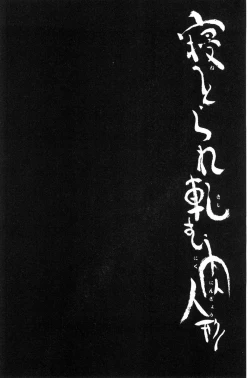 寝とられ軋む肉人形